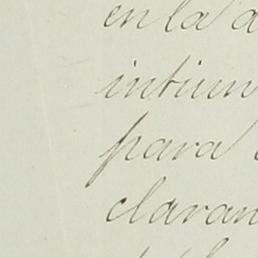 en la a
intium
para
claran